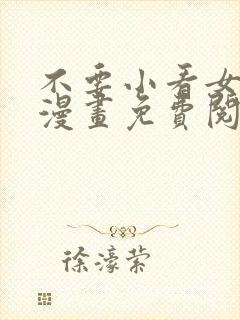 不要小看女
漫畫免費閱
徐濠萦